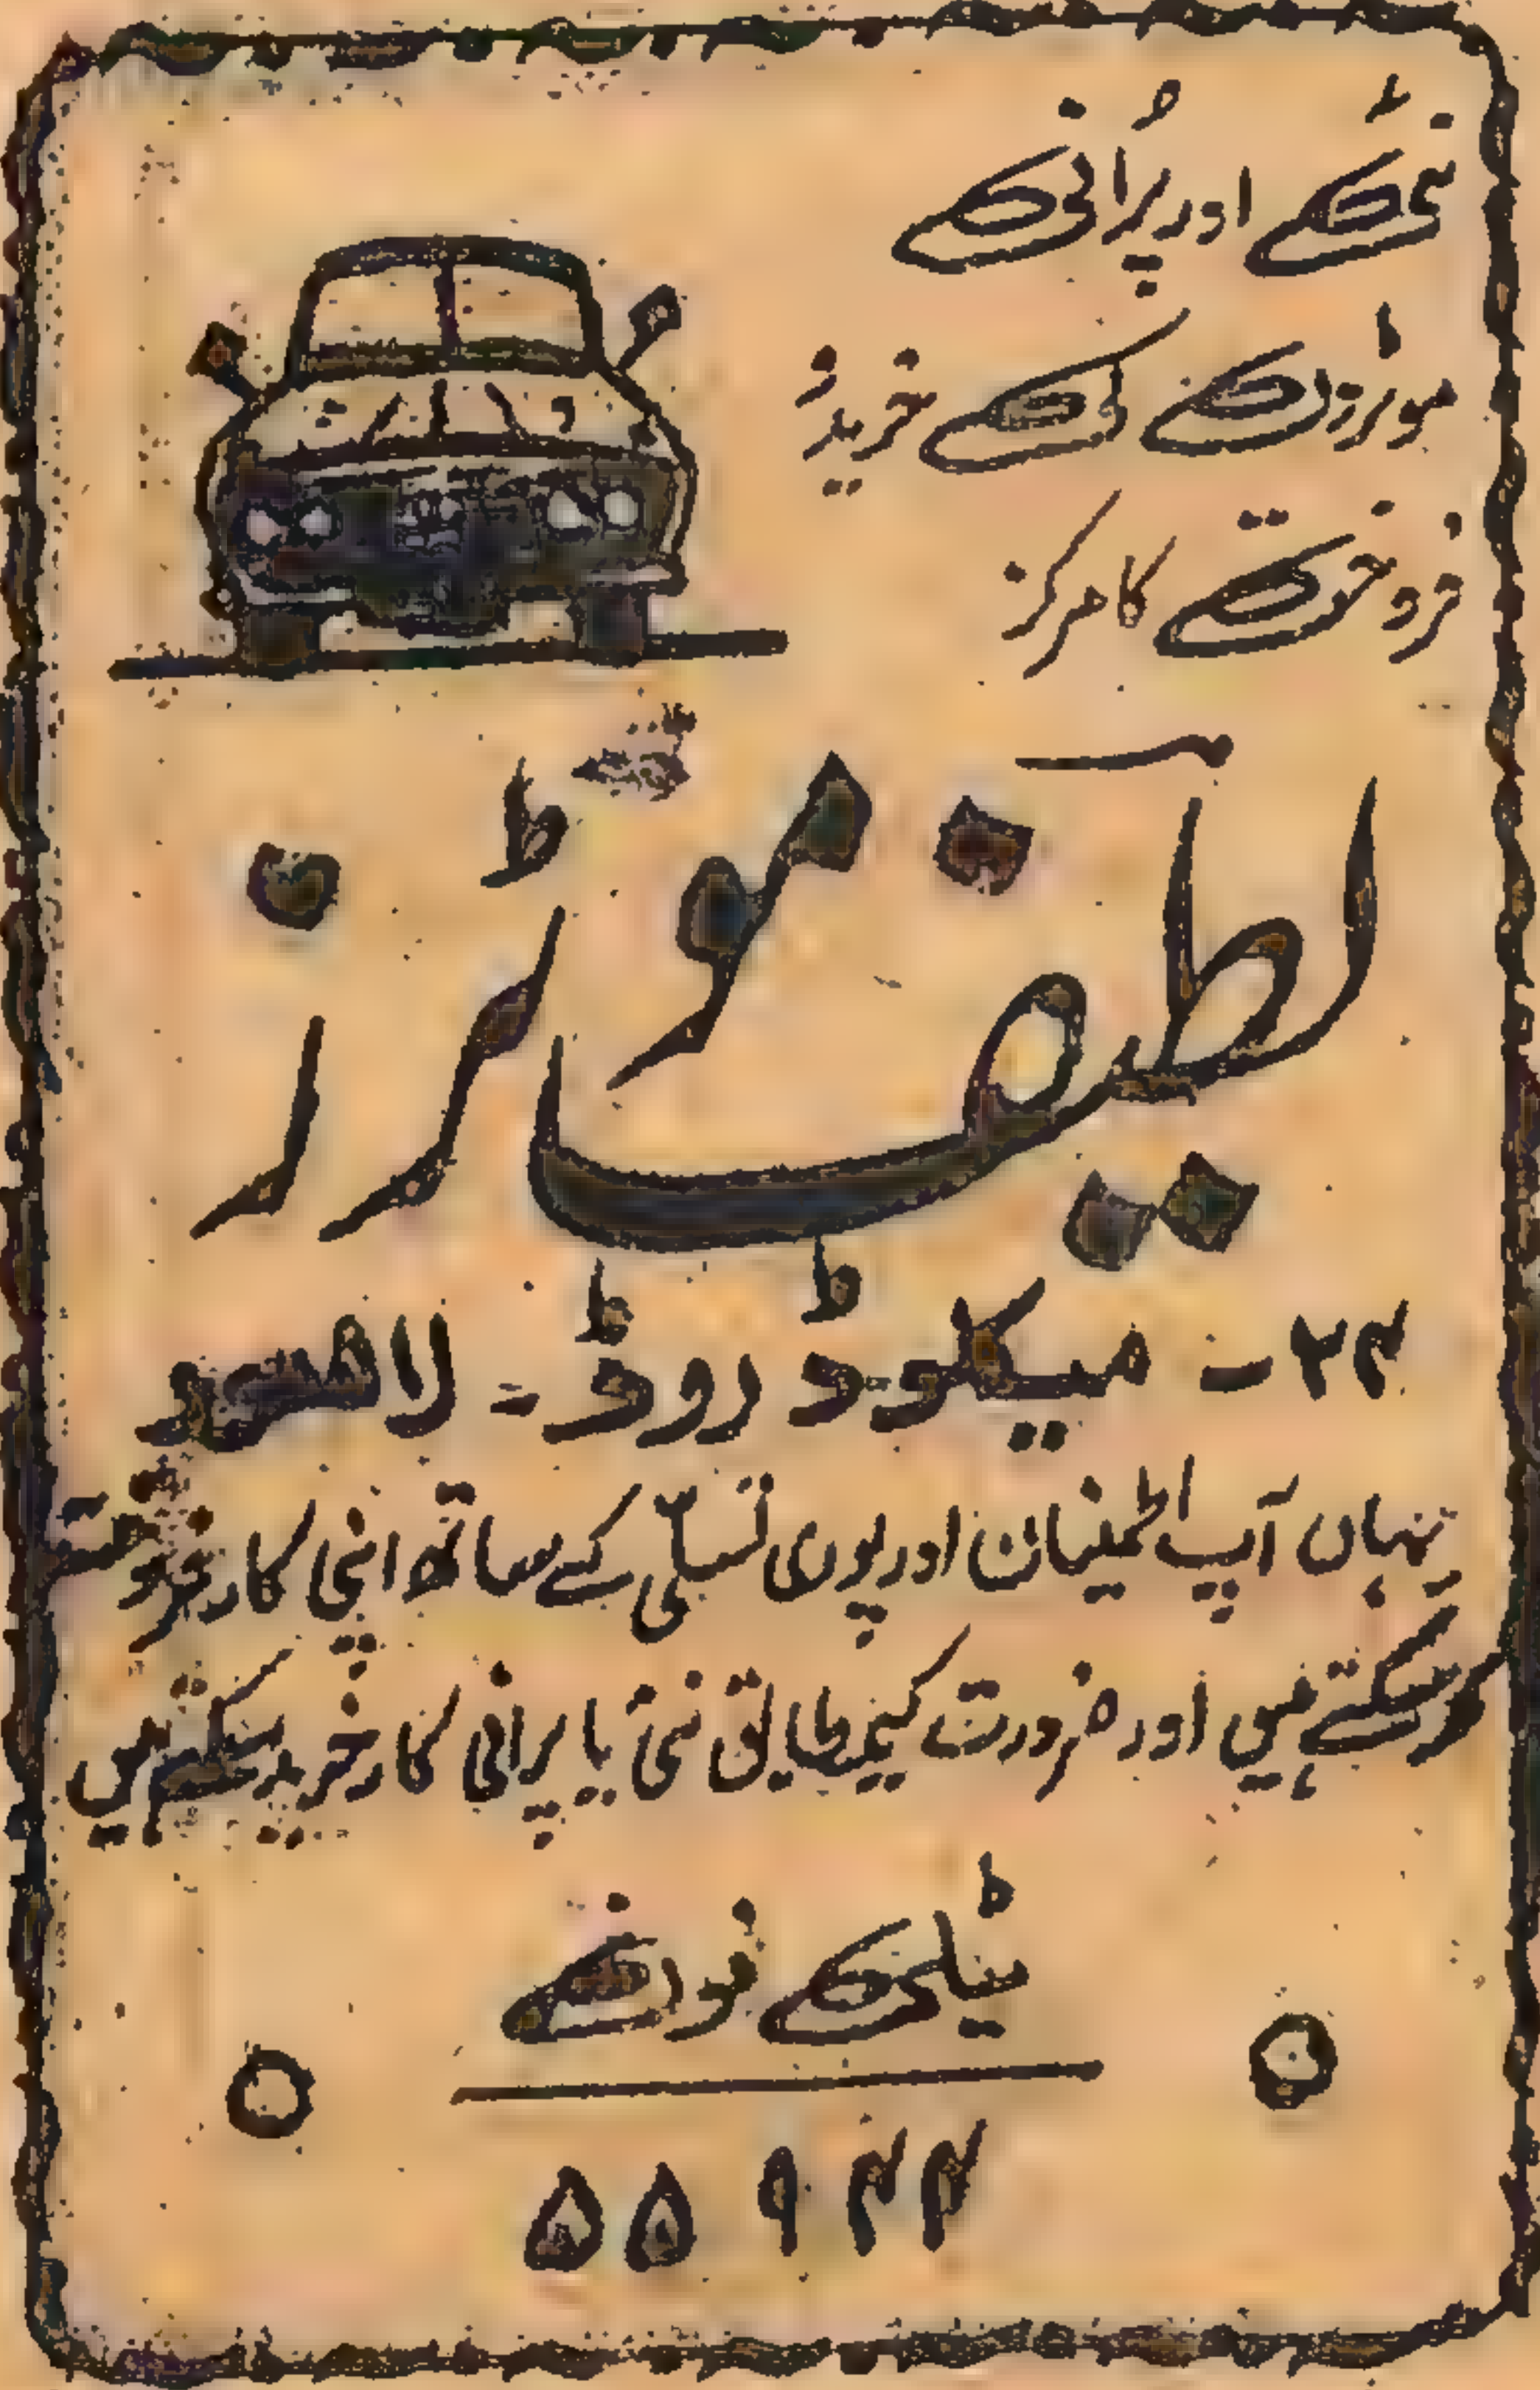 نئی اور پُرانی
موٹروں کی خرید و
فروخت کا مرکز
لطیف موٹرز
۲۴ - میکلوڈ روڈ - لاھور
یہاں آپ اطمینان اور پوری تسلّی کے ساتھ اپنی کار فروخت
کر سکتے ہیں اور ضرورت کے مطابق نئی یا پرانی کار خرید سکتے ہیں
ٹیلی فون
۵۵۹۴۴